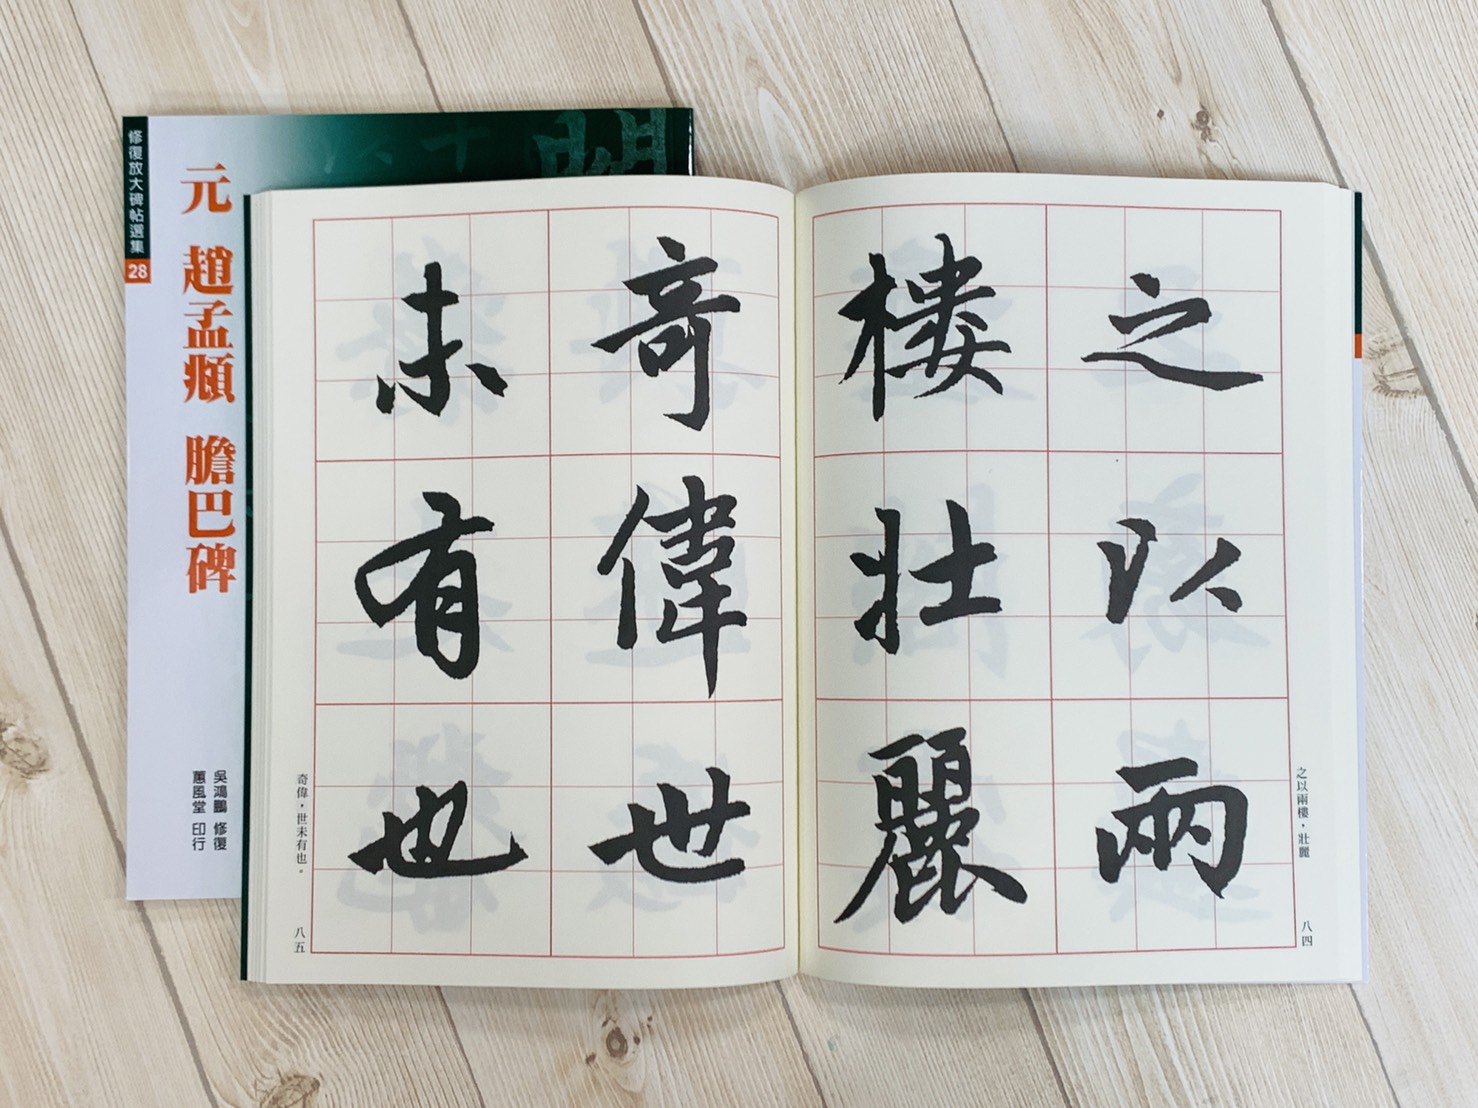 修復放大碑帖選集
28
元 趙孟頫 膽巴碑
吳鴻鵬 修復
蕙風堂 印行
之以兩
樓壯麗
奇偉世
未有也
之以兩樓，壯麗
八四
奇偉，世未有也。
八五